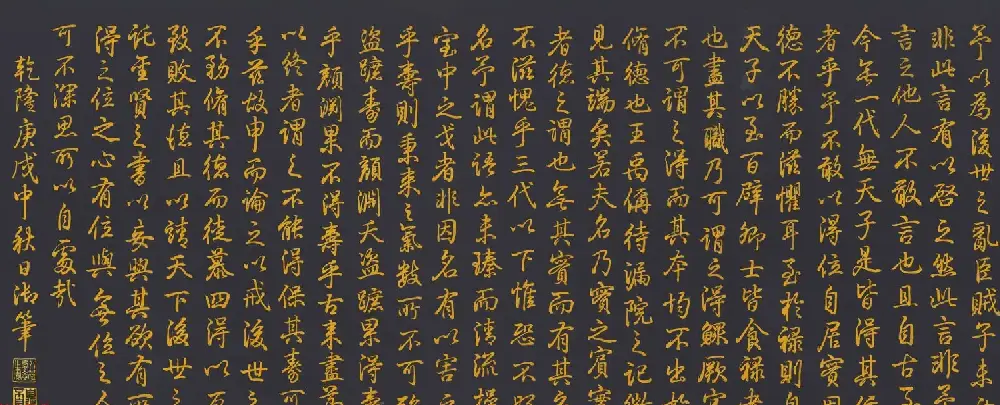 予以為後世之亂臣賊子未
非此言有以啓之然此言非
言之他人不敢言也且自古
今無一代無天子是皆得其
者乎予不敢以得位自居實
德不勝而滋懼耳至於祿則自
天子以至百辟卿士皆食祿
也盡其職乃可謂之得鰥厥官
不可謂之得而其本均不出於
脩德也王禹偁待漏院之記
見其端矣若夫名乃實之賓實
者德之謂也無其實而有其
不滋愧乎三代以下惟恐不
名予謂此語亦未臻而清流
室中之戈者非因名有以害
乎壽則秉來之氣數所不可
盜蹠壽而顏淵夭盜蹠果得壽
乎顏淵果不得壽乎古來盡
以終者謂之不能得保其壽可
乎茲故申而論之以戒後世之
不務脩其德而徒慕四得以
致敗其德且以請天下後世之
託聖賢之書以妄興其欲有
得之位之心有位與無位之人
可不深思所以自處哉
乾隆庚戌中秋日御筆